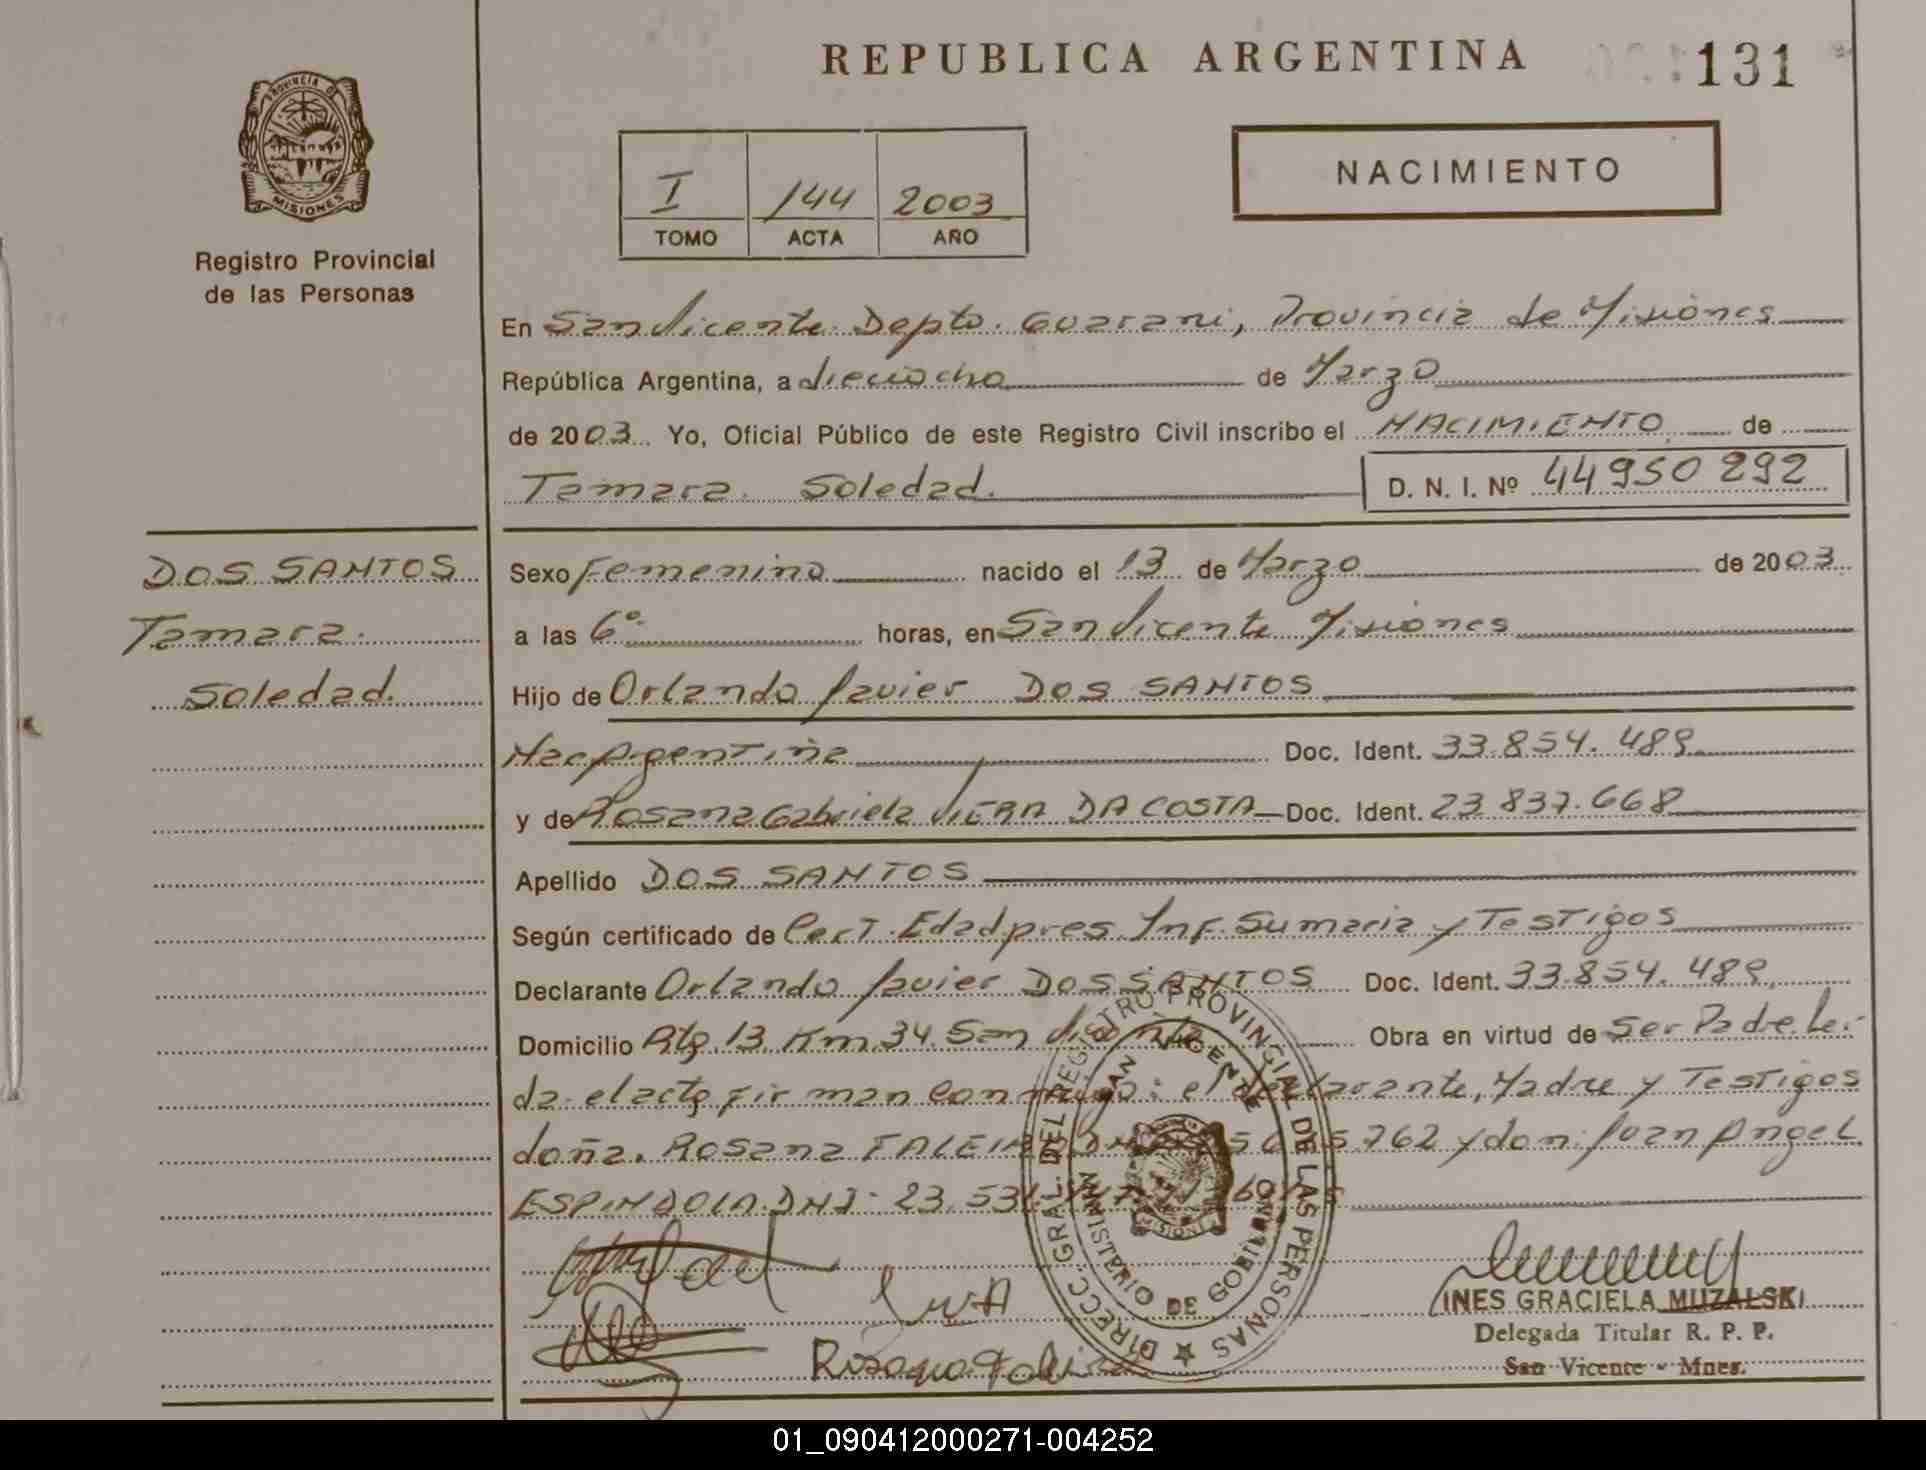 REPUBLICA ARGENTINA
131
PROVINCIA DE
MISIONES
Registro Provincial
de las Personas
I 144 2003
TOMO ACTA AÑO
NACIMIENTO
En San Vicente. Depto. Guarani, Provincia de Misiones
República Argentina, a dieciocho de Marzo
de 2003 Yo, Oficial Público de este Registro Civil inscribo el NACIMIENTO de
Tamara Soledad. D. N. I. Nº 44950292
DOS SANTOS
Tamara
Soledad.
Sexo Femenino nacido el 13 de Marzo de 2003
a las 6º horas, en San Vicente Misiones
Hijo de Orlando Javier DOS SANTOS
Nac Argentina Doc. Ident. 33.854.489
y de Rosana Gabriela VIERA DA COSTA Doc. Ident. 23.837.668
Apellido DOS SANTOS
Según certificado de Cert. Edad pres. Inf. Sumaria y Testigos
Declarante Orlando Javier DOS SANTOS Doc. Ident. 33.854.489
Domicilio Rta. 13. Km. 34. San Vicente Obra en virtud de Ser Padre. Lei-
da el acta firman conmigo: el declarante, Madre y Testigos
doña. Rosana FALEIRO 762 y don. Juan Angel
ESPINDOLA. DNI: 23.531.
DIRECC. GRAL. DEL REGISTRO PROVINCIAL DE LAS PERSONAS
SAN VICENTE
MINISTERIO DE GOBIERNO
MISIONES
INES GRACIELA MUZALSKI
Delegada Titular R. P. P.
San Vicente - Mnes.
01_090412000271-004252